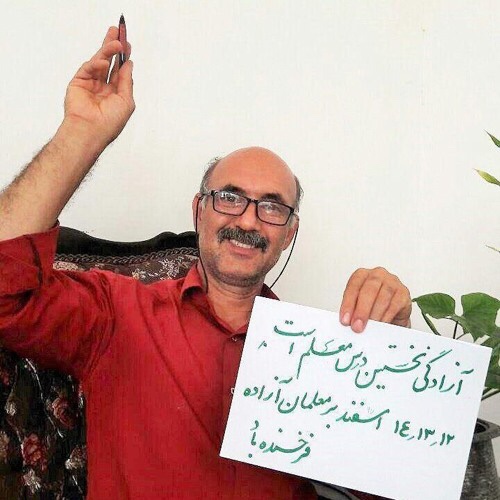 آزادگی نخستین درس معلم است
۱۲، ۱۳، ۱۴ اسفند بر معلمان آزاده
فرخنده باد